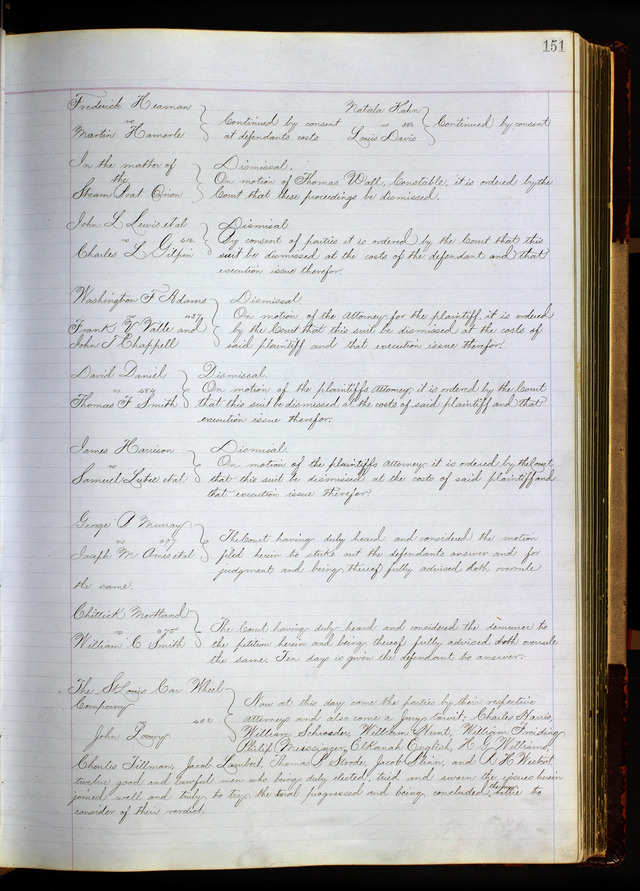 151
Frederick Heaman
vs
Martin Hamerle
Continued by consent
at defendants costs
Natala Hahn
vs
Louis Davis
Continued by consent
In the matter of
the
Steam Boat Orion
Dismissal.
On motion of Thomas Wall, Constable, it is ordered by the
Court that these proceedings be dismissed.
John L Lewis et al
vs
Charles L Gilpin
Dismisal
By consent of parties it is ordered by the Court that this
suit be dismissed at the costs of the defendant and that
execution issue therefor.
Washington F Adams
vs
Frank V Valle and
John T Chappell
Dismissal.
On motion of the Attorney for the plaintiff, it is ordered
by the Court that this suit be dismissed at the costs of
said plaintiff and that execution issue therefor.
David Daniel
vs
Thomas F Smith
Dismissal
On motion of the plaintiffs Attorney it is ordered by the Court
that this suit be dismissed at the costs of said plaintiff and that
execution issue therefor.
James Harrison
vs
Samuel et al
Dismisal.
On motion of the plaintiffs Attorney it is ordered by the Court
that this suit be dismissed at the costs of said plaintiff and
that execution issue therefor.
George A Murray
vs
Joseph M Ames et al
The Court having duly heard and considered the motion
filed herein to strike out the defendants answer and for
judgment and being thereof fully advised doth overrule
the same.
Chittick Mortland
vs
William C Smith
The Court having duly heard and considered the demurrer to
the petition herein and being thereof fully advised doth overrule
the same. Ten days is given the defendant to answer.
The St Louis Car Wheel
Company
vs 402
John Lowry
Now at this day come the parties by their respective
Attorneys and also come a jury towit: Charles Havis,
William Schroeder, William Hunt, William Freiding
Philip Messsinger, Elkanah English, H G Williams,
Charles Tillman, Jacob Lambert, Thomas P Strode, Jacob Stinn, and R H Westcot
twelve good and lawful men who being duly elected, tried and sworn the issues herein
joined well and truly to try, the trial progressed and being concluded, the jury retire to
consider of their verdict.